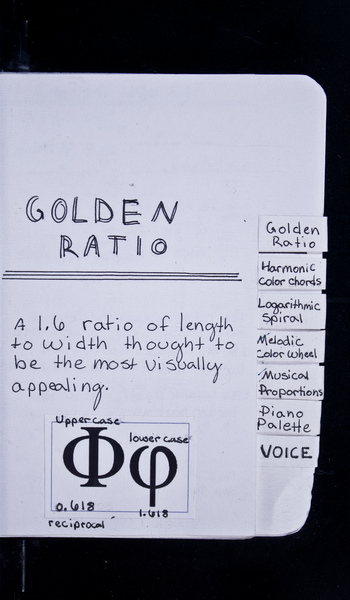 GOLDEN
RATIO
A 1.6 ratio of length
to width thought to
be the most visually
appealing.
Uppercase
lower case
Φ φ
0.618
1.618
reciprocal
Golden
Ratio
Harmonic
Color chords
Logarithmic
Spiral
Melodic
Color wheel
Musical
Proportions
Piano
Palette
VOICE